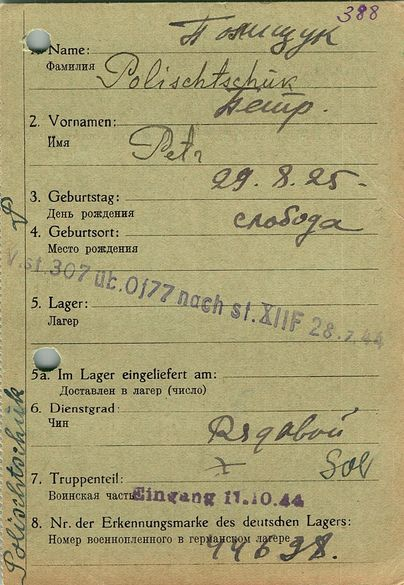 388
Полищук
1. Name:
Фамилия
Polischtschuk
Петр.
2. Vornamen:
Имя
Petr
29.8.25-
3. Geburtstag:
День рождения
слобода
4. Geburtsort:
Место рождения
V. st. 307 üb. Of 77 nach st. XIIF 28.7.44
5. Lager:
Лагер
5a. Im Lager eingeliefert am:
Доставлен в лагер (число)
6. Dienstgrad:
Чин
Рядовой
Sol
7. Truppenteil:
Воинская часть
Eingang 11.10.44
8. Nr. der Erkennungsmarke des deutschen Lagers:
Номер военнопленного в германском лагере
Polischtschuk